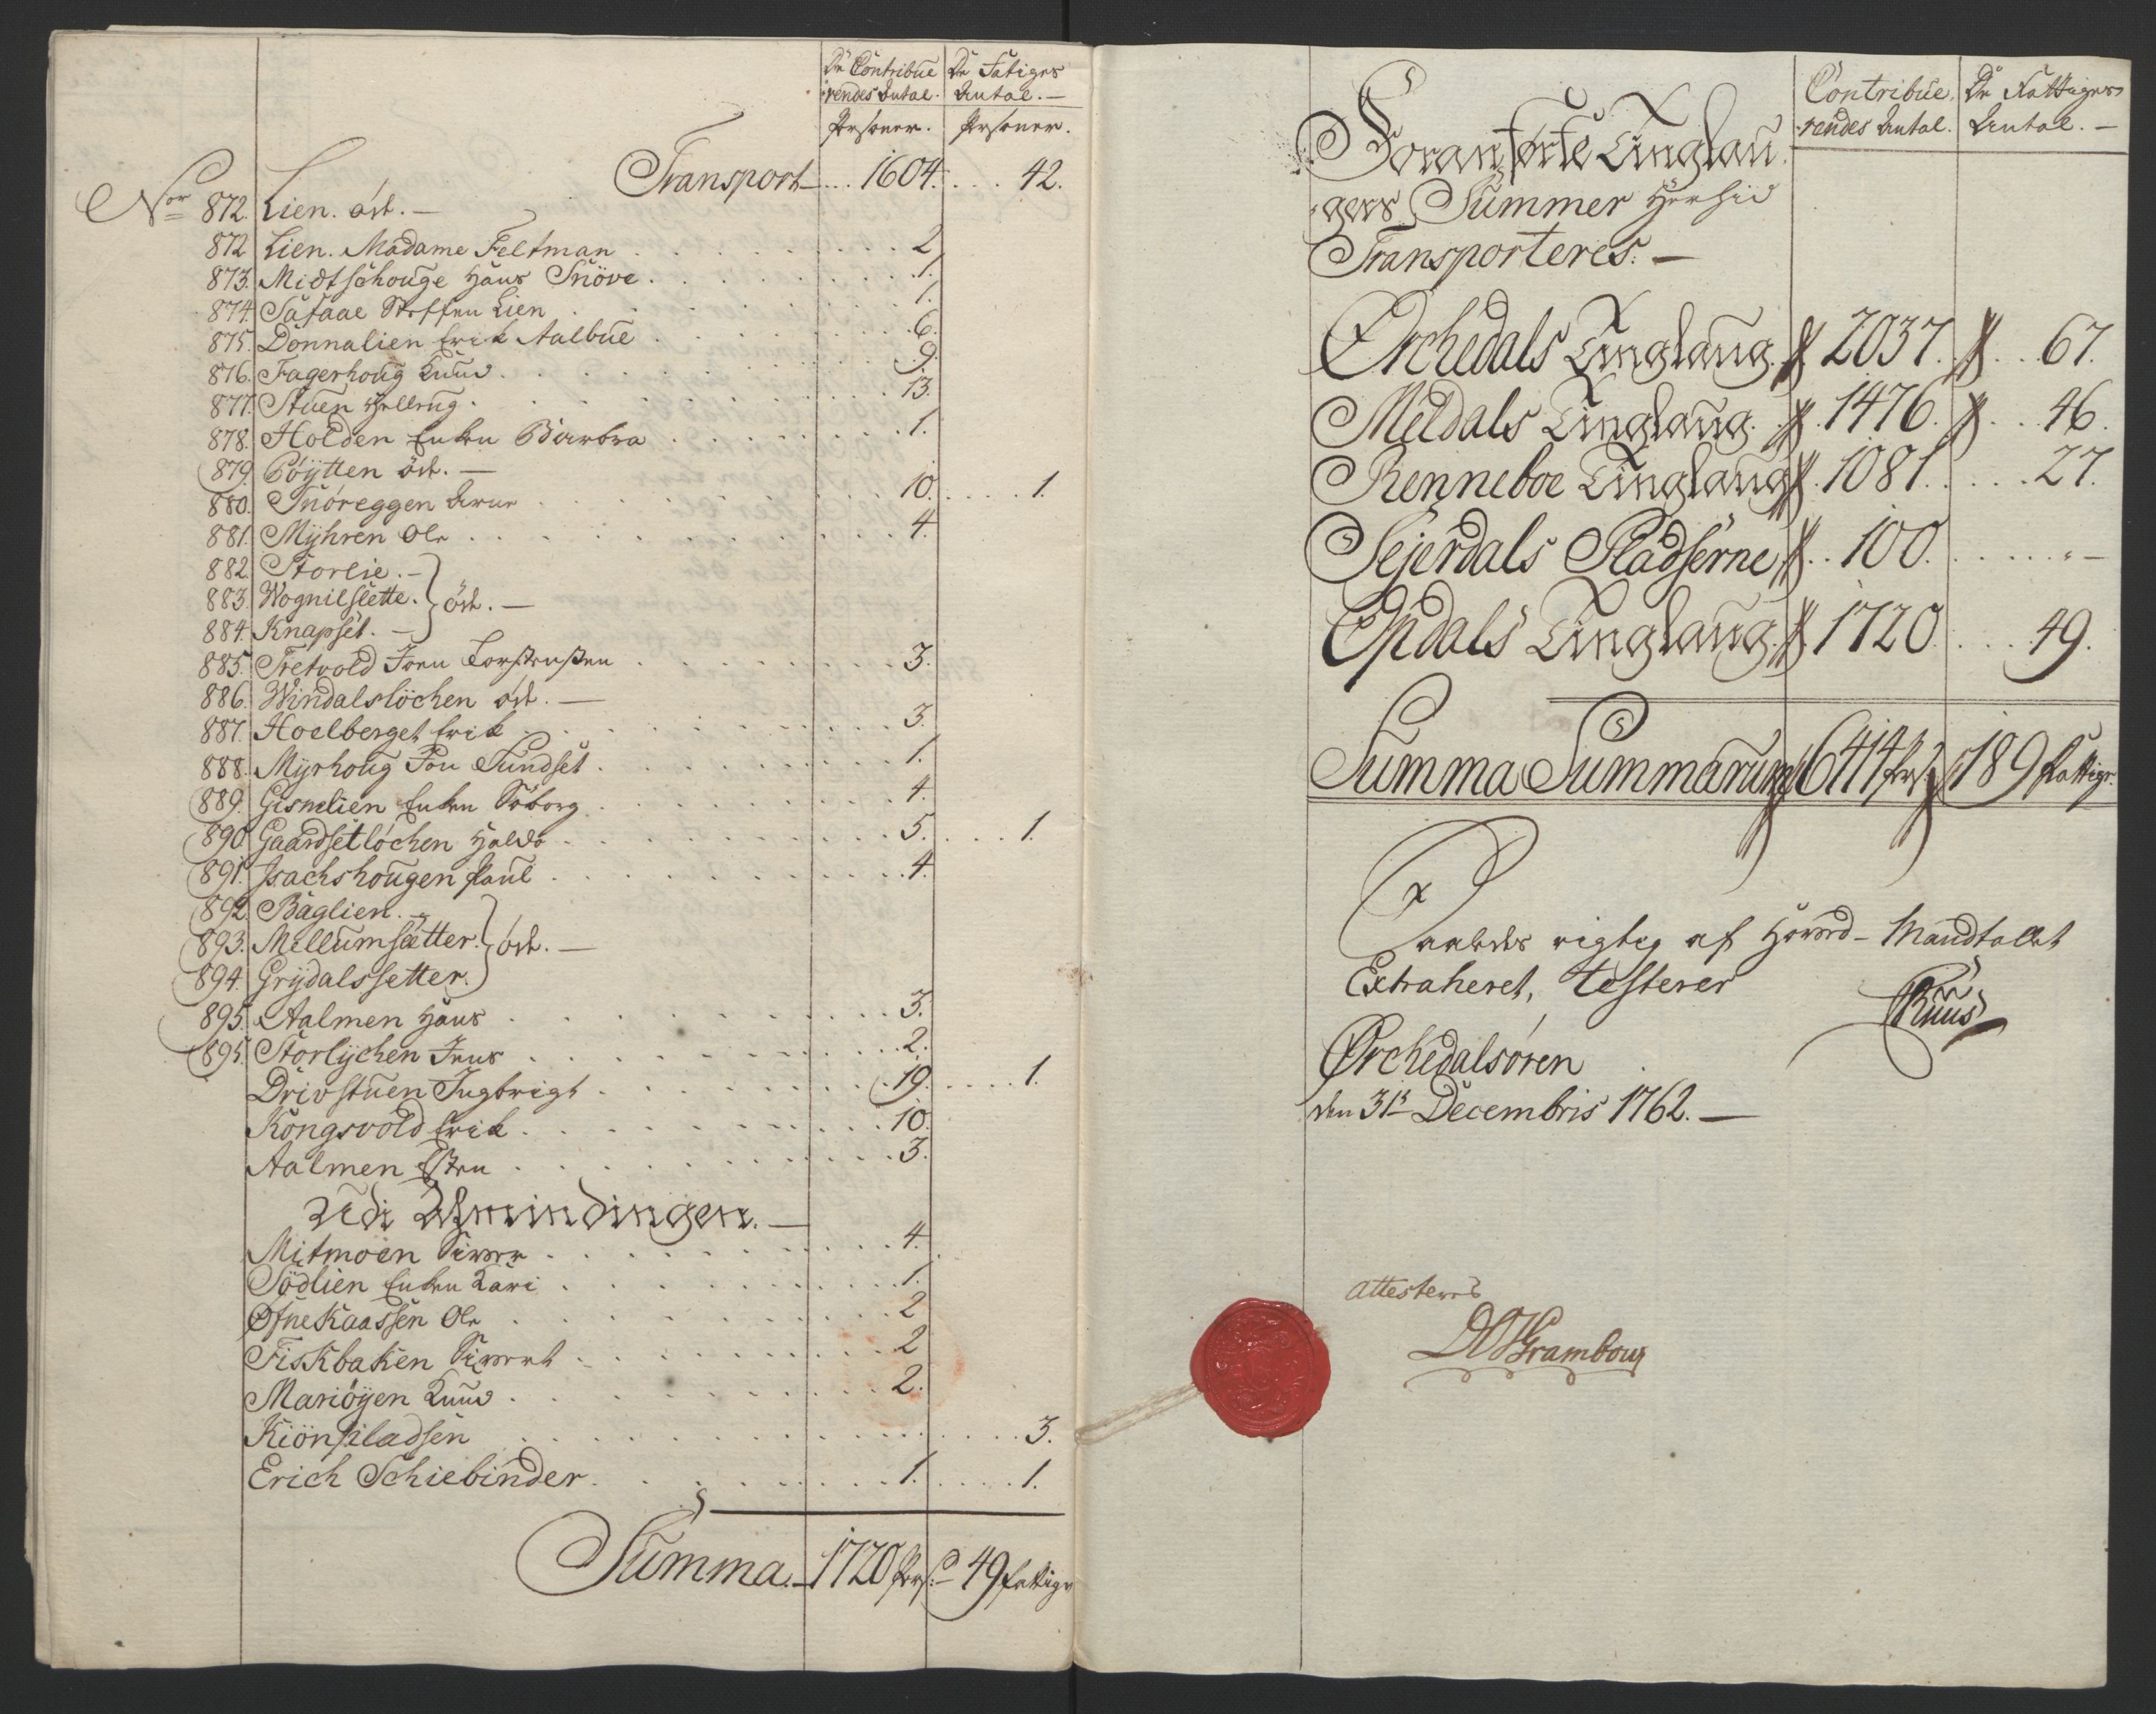 De Contribue De Fatiges
rendes Antal. Antal. —
Personer. Personer.
Transport — 1604. 42.
Nor 872. Lien. öde. —
872 Lien. Madame Feltman 2
873. Midtschouge Hans Snöve. 1.
874. Säfaae Steffen Lien 1.
875. Donnalien Erik Aalbue 6.
876. Fagerhoug Knud. 9.
877. Stuen Hellrug. 13.
878. Holden Enken Barbra 1.
879. Pöytten öde. —
880. Snöreggen Arne 10. 1.
881. Myhren Ole 4.
882. Storlie. —
883. Wognilslette. öde. —
884. Knapset. —
885. Tretvold Joen Torstensen 3.
886. Windalslöchen öde. —
887. Hoelberget Erik 3.
888. Myrhoug Jon Sundset. 1.
889. Gismlien Enken Söborg 4.
890. Gaardsetlöchen Haldo 5. 1.
891. Isachshougen Paul 4.
892. Bäglien. —
893. Mellumsletter. öde. —
894. Grydalssetter.
895. Aalmen Hans 3.
895. Storlychen Jens 2.
Drivstuen Ingbrigt 19. 1.
Kongsvold Erik 10.
Aalmen Esten 3.
Udi Almindingen. —
Mitmoen Siver 4.
Södlien Enken Kari 1.
Øfne Kaassen Ole 2
Fiskbaken Sivert 2
Mariöyen Knud 2.
Kiönpladsen 3.
Erich Schiebinder. 1. 1.
Summa. — 1720 Pers. 49 fattige
Contribue. De Fattiges
rendes Antal. Antal. —
Foranførte Tinglau
gers Summer Herhid
Transporteres. —
Orchedals Tinglaug. 2037. 67.
Meldals Tinglaug. 1476. 46.
Renneboe Tinglaug 1081. 27.
Sejerdals Pladserne 100. —
Opdals Tinglaug. 1720. 49.
Summa Summarum 6414 Pers. 189 fattige
Saaledes rigtig af Hoved-Mandtallet
Extraheret, testerer
Ruus
Orchedalsøren
den 31t Decembris 1762. —
Attesteres
Grambow